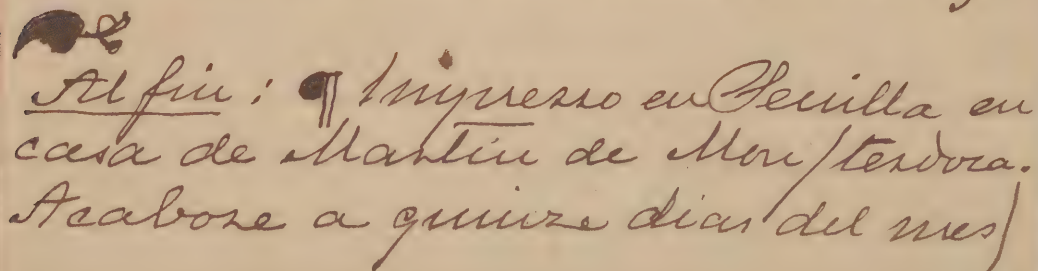 Al fin: ¶ Impresso en Seuilla en
casa de Martin de Mon/tesdoca.
Acabose a quinze dias del mes/